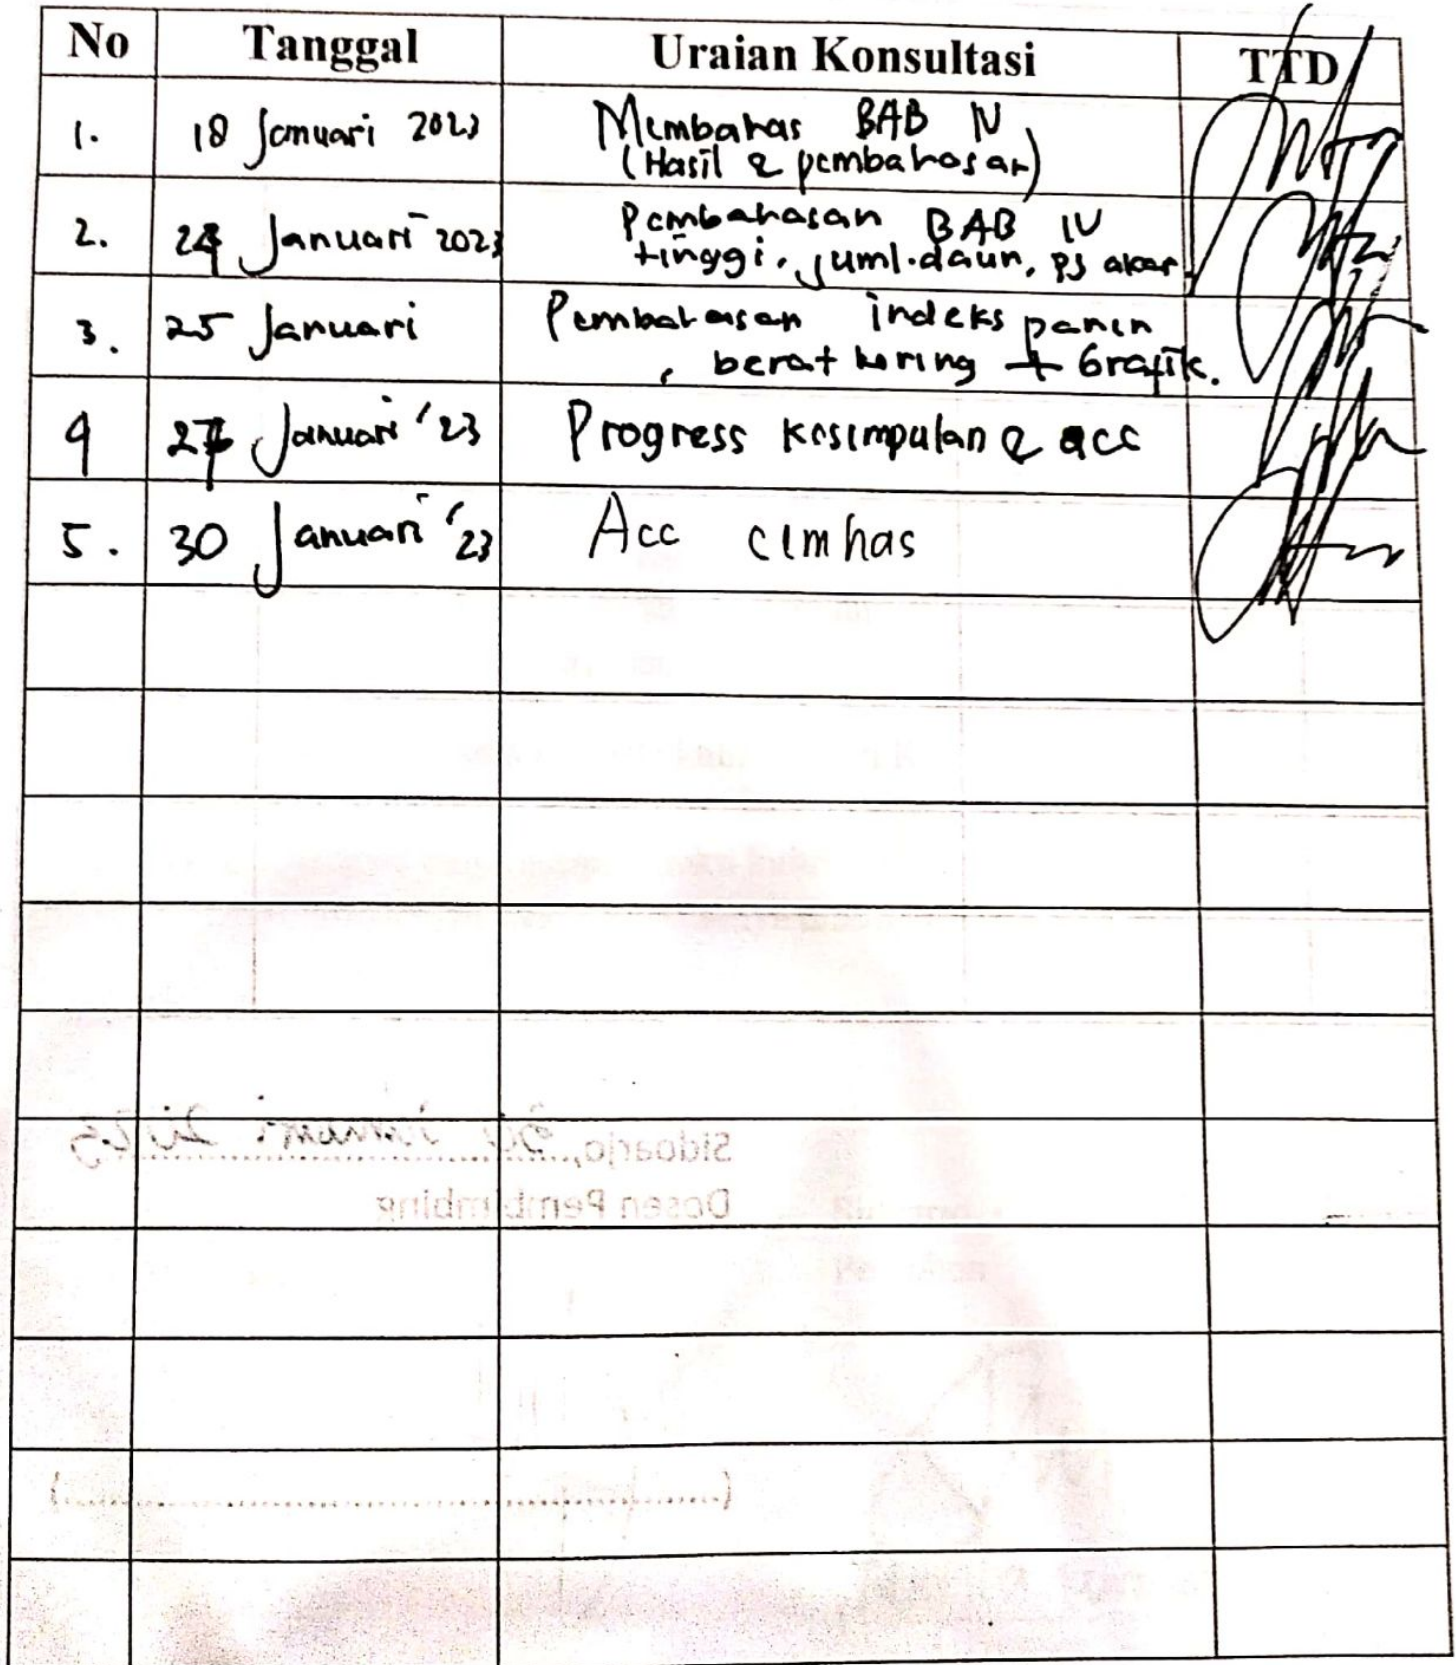 No Tanggal Uraian Konsultasi TTD
1. 18 Januari 2023 Membahas BAB IV
(Hasil & pembahasan)
2. 24 Januari 2023 Pembahasan BAB IV
tinggi, juml.daun, pj akar
3. 25 Januari Pembahasan indeks panen
, berat kering + Grafik.
4 27 Januari '23 Progress kesimpulan & acc
5. 30 Januari '23 Acc semhas
Sidoarjo, 30 Januari 2023
Dosen Pembimbing
(..........)